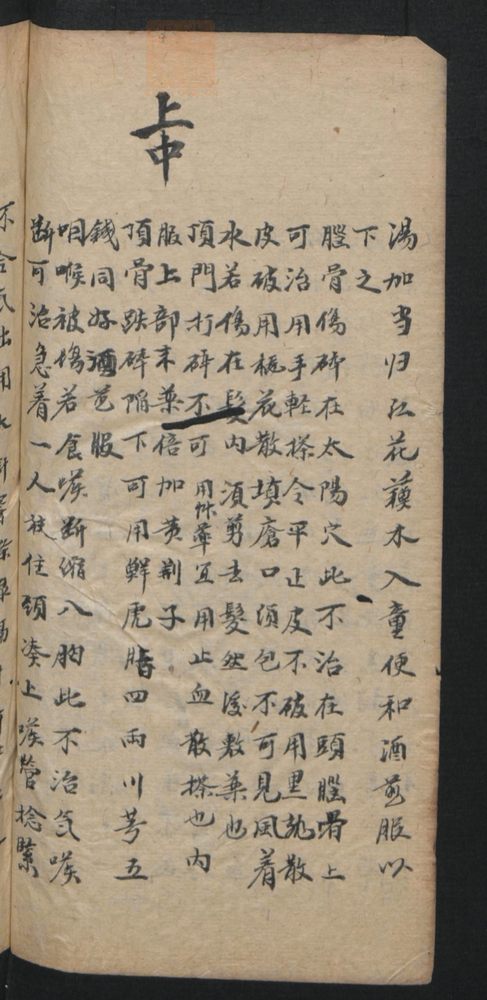 上中
湯加当归紅花蘓木入童便和酒煎服以
下之
腦骨傷碎在太陽穴此不治在頭腦骨上
可治用手輕搽令平正皮不破用黑龍散
皮破用桃花散填瘡口須包不可見風着
水若傷在髮内須剪去髮然後敷藥也
頂門打碎不可用 宜用止血散搽也内
服上部末藥倍加黄荆子
頂骨跌碎陥下可用鮮虎脂四兩川芎五
錢同好酒 服
咽喉被傷若食嗓断縮入胸此不治氣嗓
断可治急着一人扶住頭凑上嗓管捻緊